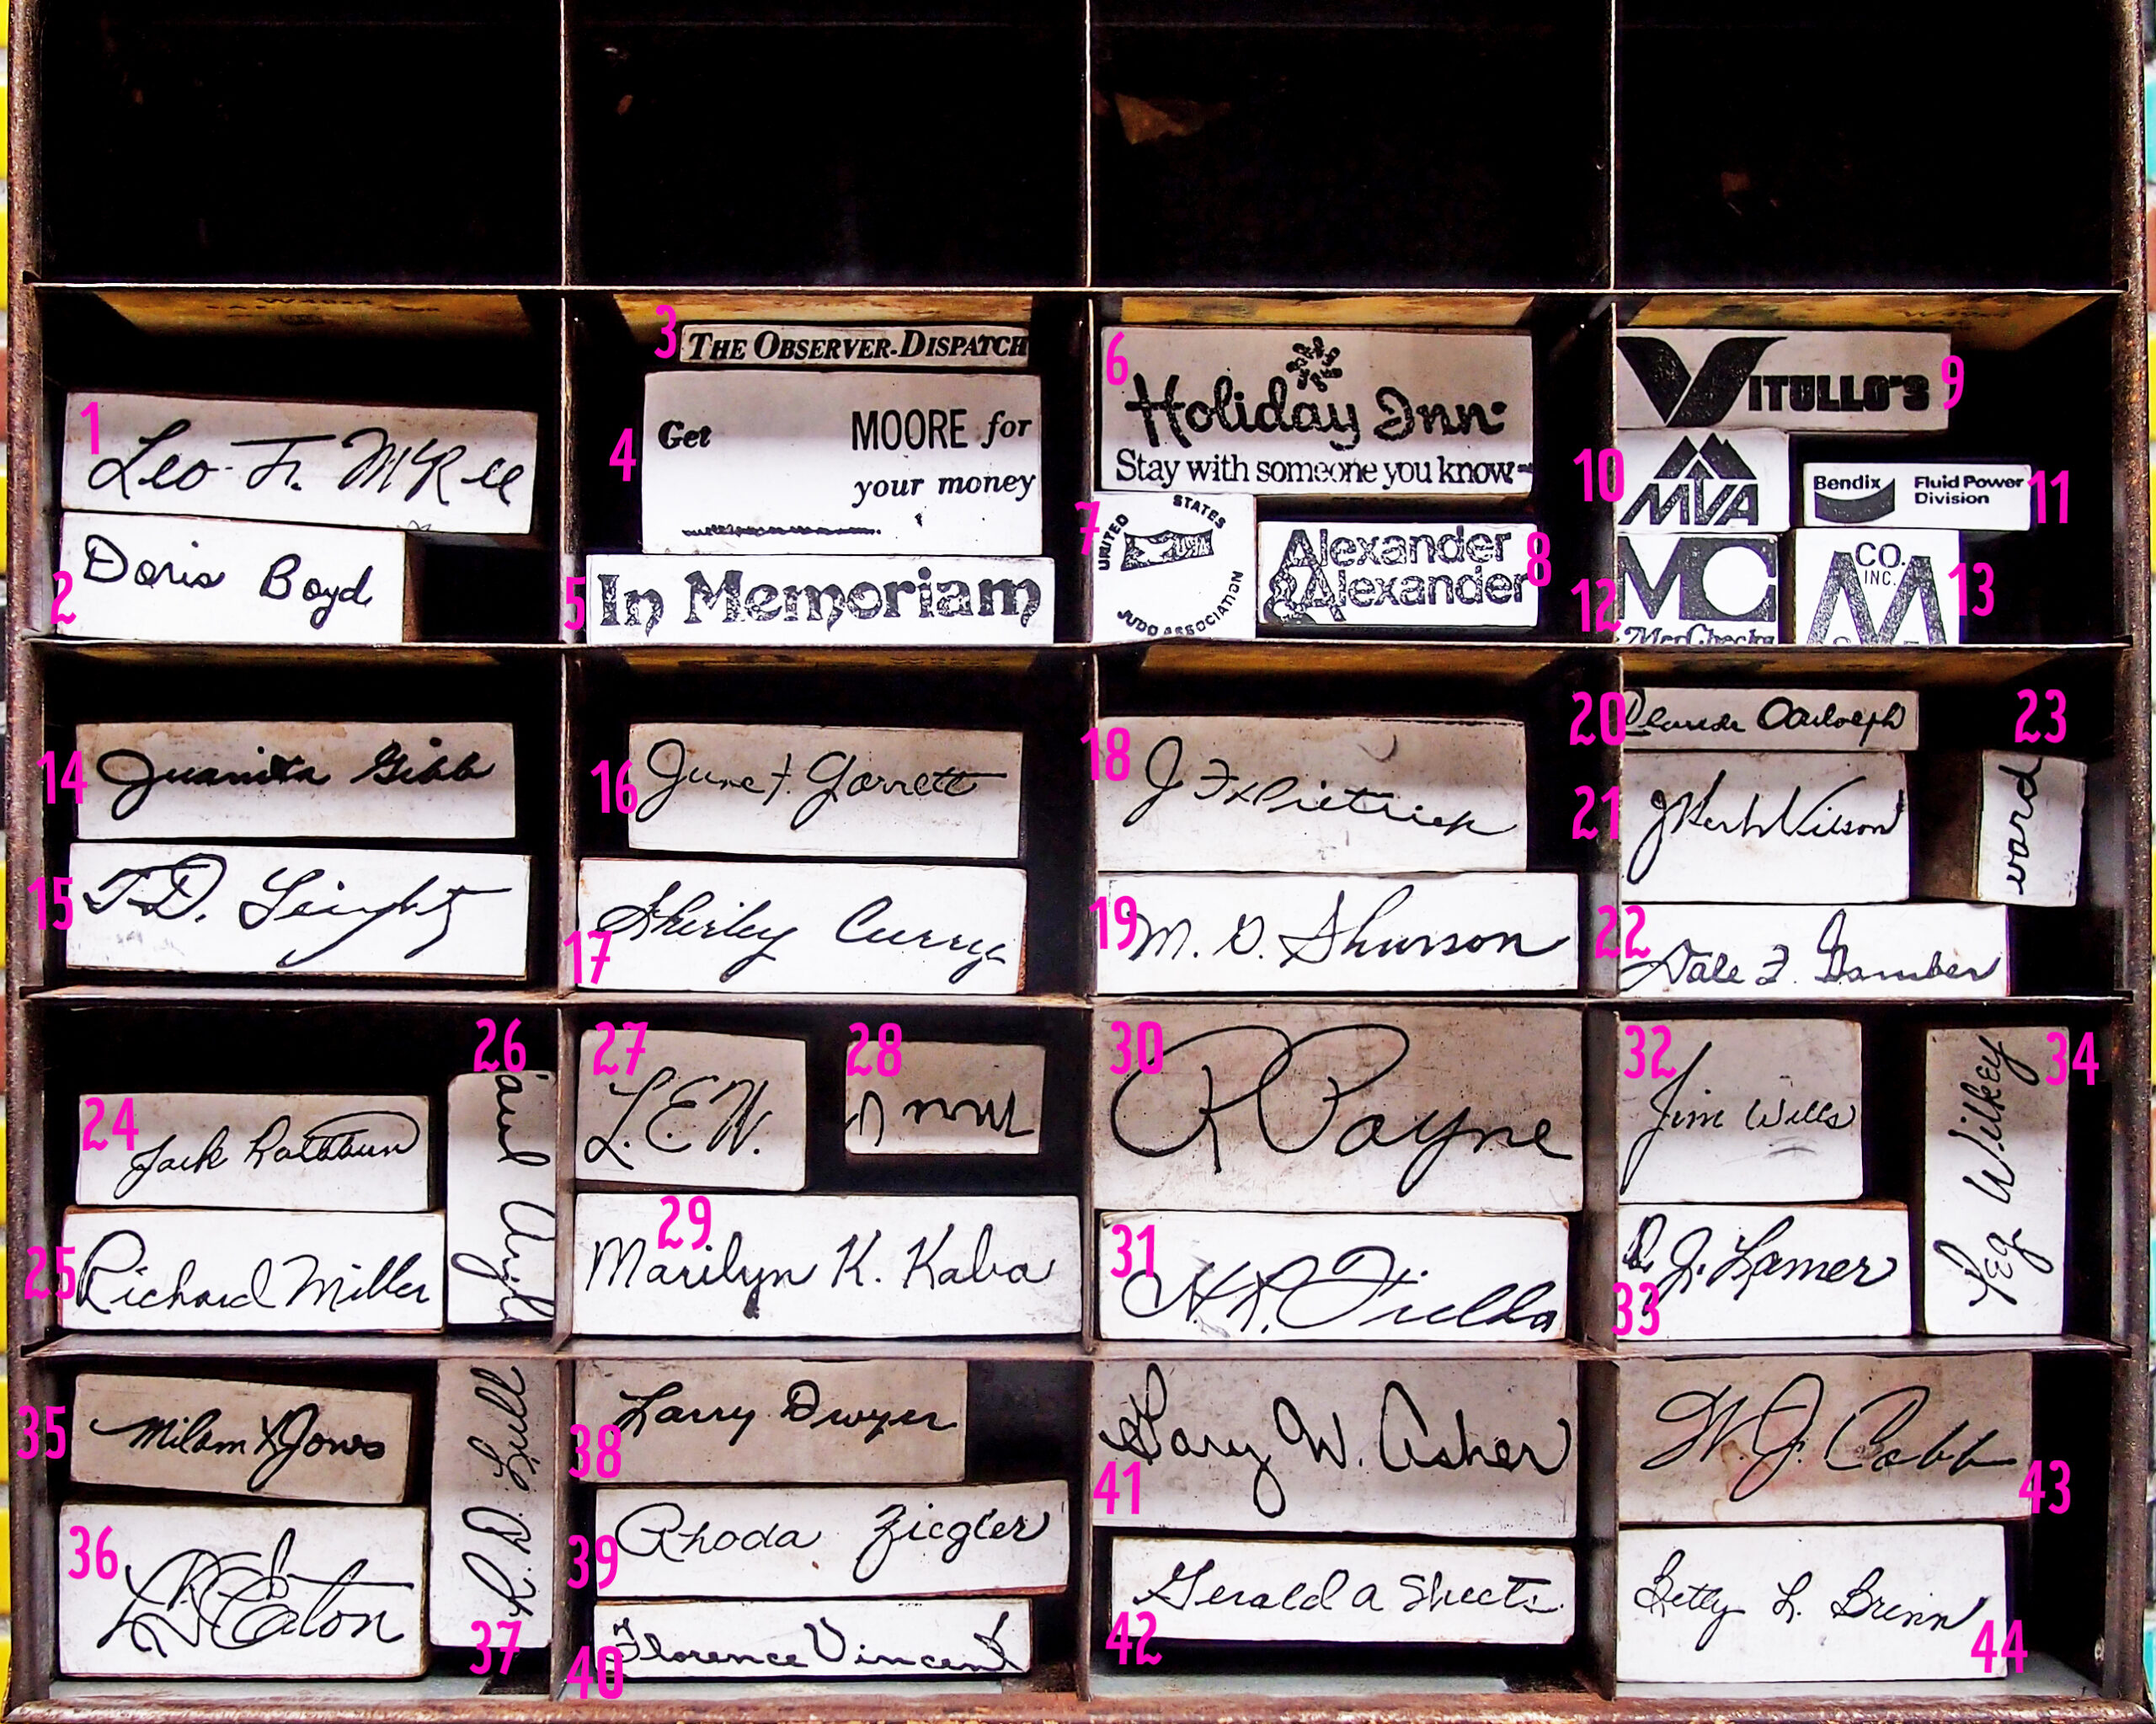 1
Leo F. McKee
2
Doris Boyd
3
THE OBSERVER-DISPATCH
4
Get MOORE for
your money
5
In Memoriam
6
Holiday Inn
Stay with someone you know
7
UNITED STATES
USJA
JUDO ASSOCIATION
8
Alexander
& Alexander
9
VITULLO'S
10
MVA
11
Bendix Fluid Power
Division
12
MC
MerChecks
13
CO.
INC.
M
14
Juanita Gibb
15
T.D.
16
June F. Garrett
17
Shirley Curry
18
J
19
M. D. Shurson
20
21
Wilson
22
Dale F. Gamber
23
ward
24
Jack Rathbun
25
Richard Miller
26
27
L.E.W.
28
29
Marilyn K. Kaba
30
R Payne
31
32
Jim Wills
33
D. J. Lamer
34
Peg Wilkey
35
Milam Jones
36
Eaton
37
R. D. Lull
38
Larry Dwyer
39
Rhoda Ziegler
40
Florence Vincent
41
Gary W. Asher
42
Gerald A Sheets
43
W. J. Cobb
44
Betty L. Brinn